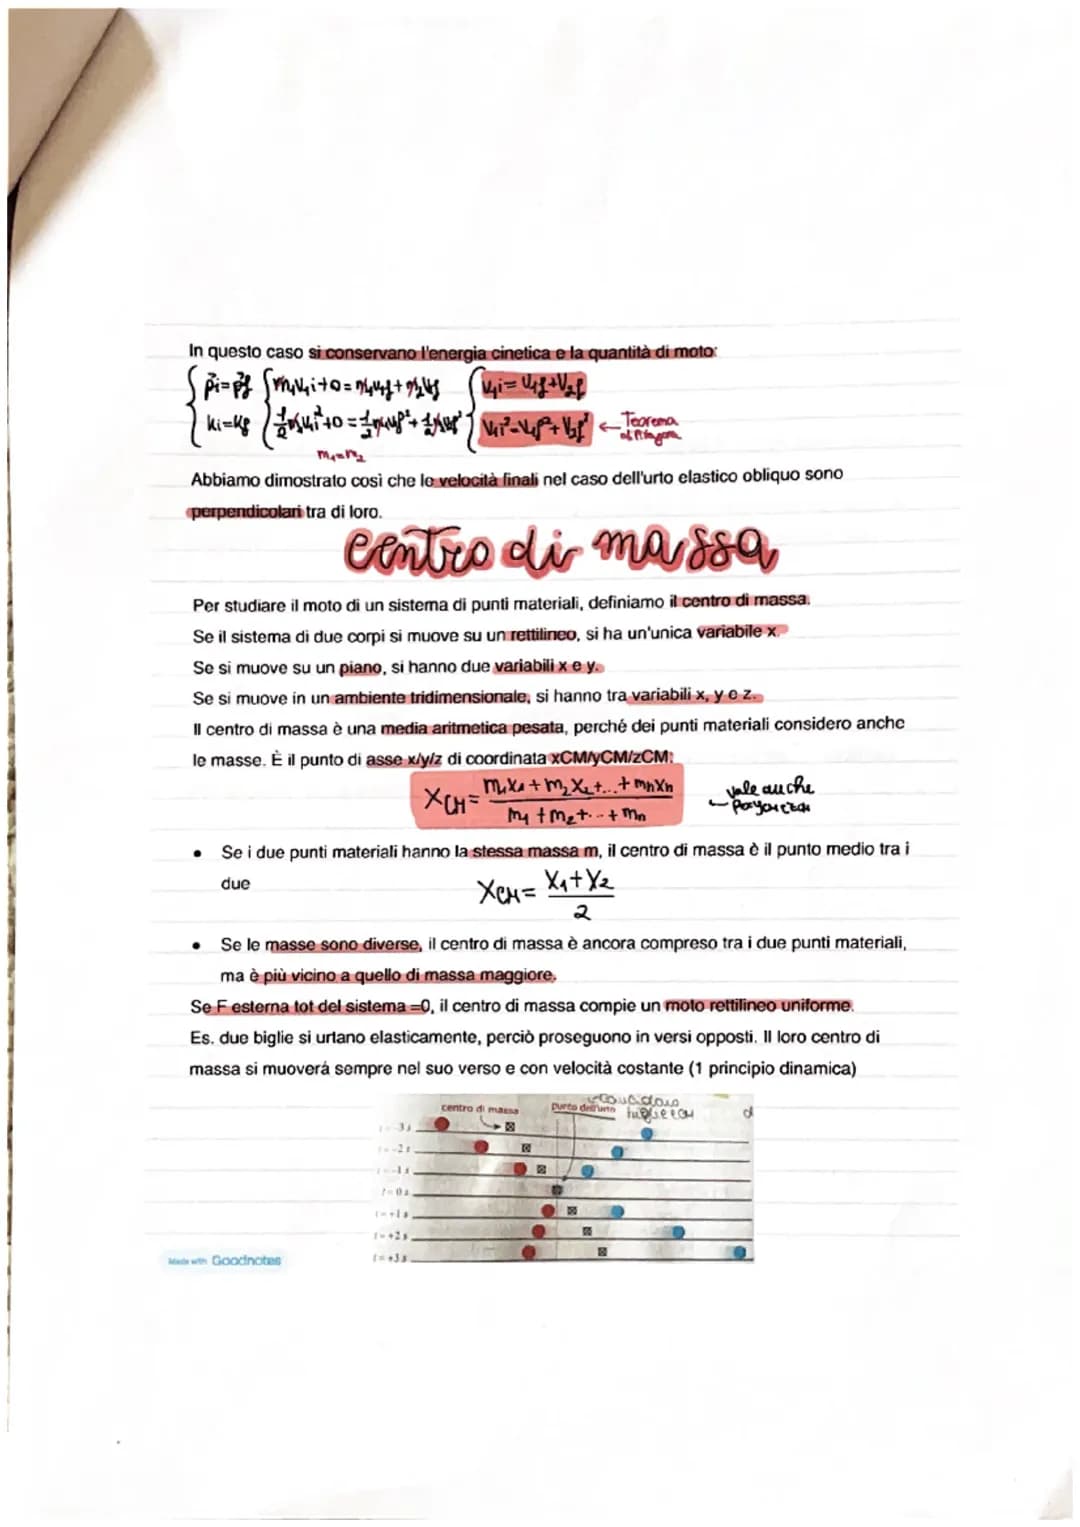 In questo caso si conservano l'energia cinetica e la quantità di moto:
p⃗i=p⃗f { m₁v₁i+0=m₁v₁f+m₂v₂f { v₁i=v₁f+v₂f
ki=kf { ½m₁v₁i²+0=½m₁v₁f²+½m₂v₂f² { v₁i²=v₁f²+v₂f² ← Teorema
di Pitagora
m₁=m₂
Abbiamo dimostrato così che le velocità finali nel caso dell'urto elastico obliquo sono
perpendicolari tra di loro.
centro di massa
Per studiare il moto di un sistema di punti materiali, definiamo il centro di massa.
Se il sistema di due corpi si muove su un rettilineo, si ha un'unica variabile x.
Se si muove su un piano, si hanno due variabili x e y.
Se si muove in un ambiente tridimensionale, si hanno tra variabili x, y e z.
Il centro di massa è una media aritmetica pesata, perché dei punti materiali considero anche
le masse. È il punto di asse x/y/z di coordinata xCM/yCM/zCM:
XCM= m₁x₁+m₂x₂+...+mnxn
m₁+m₂+...+mn
vale anche
← per y cm e z cm
• Se i due punti materiali hanno la stessa massa m, il centro di massa è il punto medio tra i
due
XCM= X₁+X₂
2
• Se le masse sono diverse, il centro di massa è ancora compreso tra i due punti materiali,
ma è più vicino a quello di massa maggiore.
Se F esterna tot del sistema =0, il centro di massa compie un moto rettilineo uniforme.
Es. due biglie si urtano elasticamente, perciò proseguono in versi opposti. Il loro centro di
massa si muoverá sempre nel suo verso e con velocità costante (1 principio dinamica)
coincidono
centro di massa punto dell'urto biglie e CM d
t=-3s
t=-2s
t=-1s
t=0s
t=+1s
t=+2s
t=+3s
Made with Goodnotes